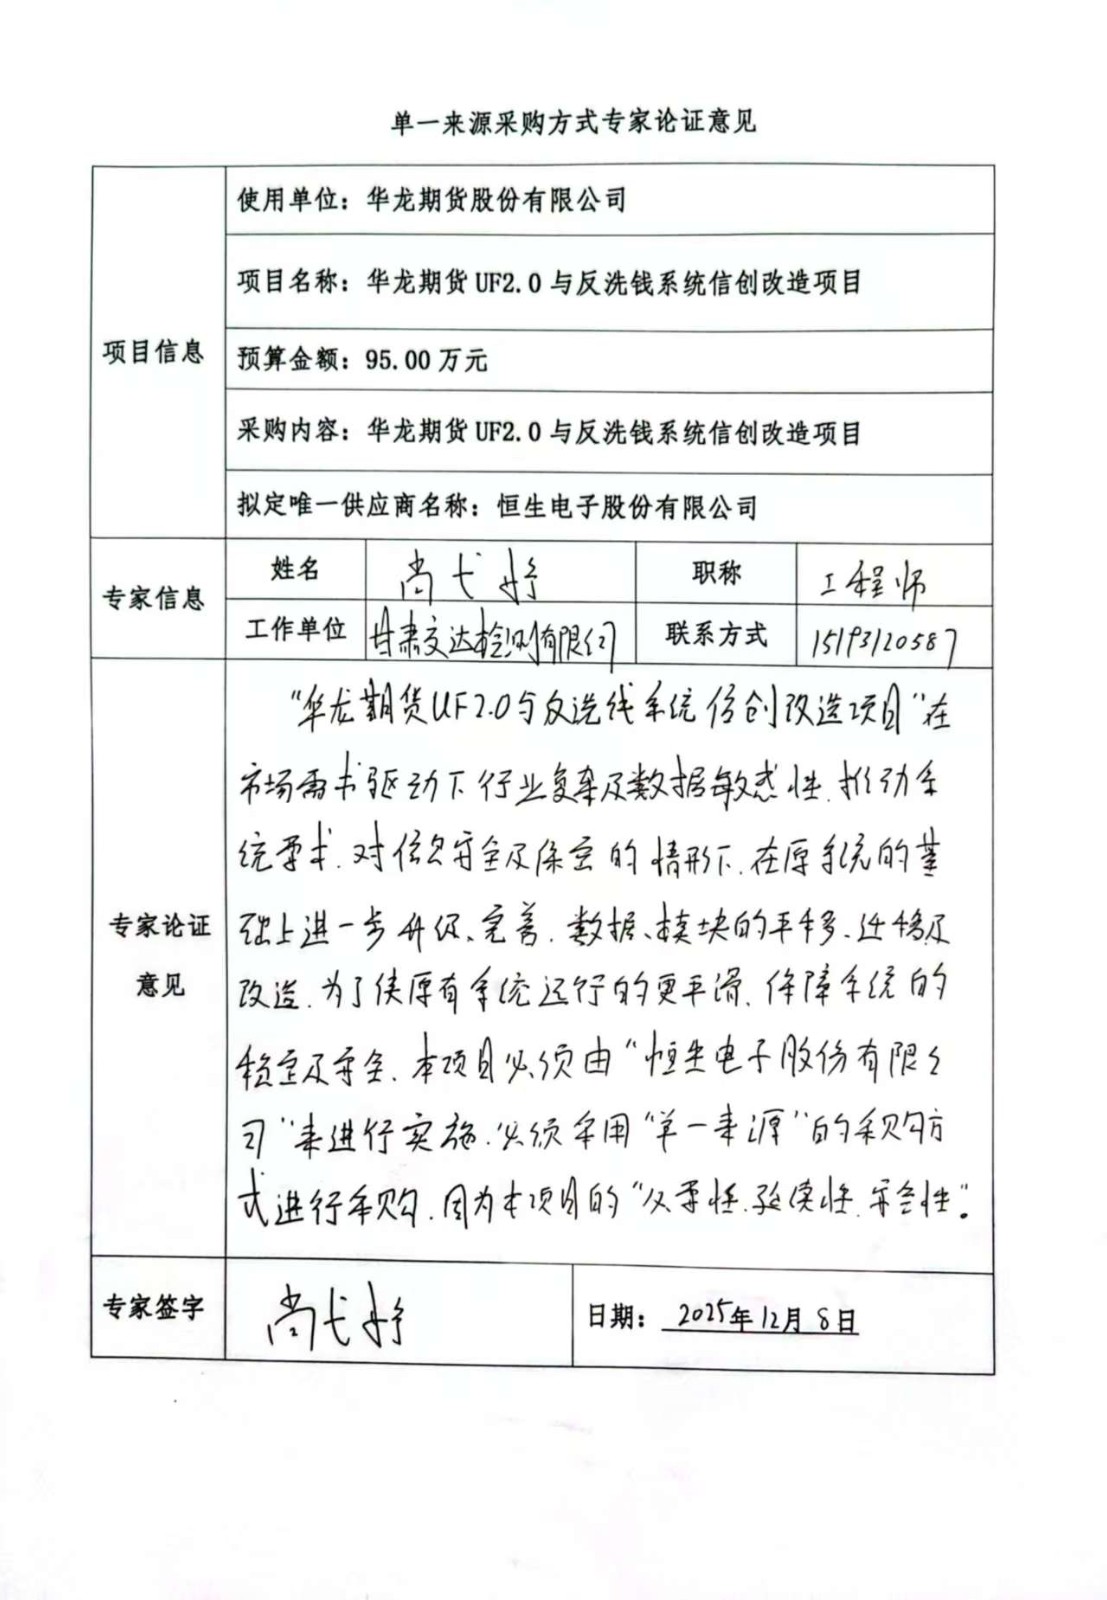 单一来源采购方式专家论证意见
项目信息
使用单位：华龙期货股份有限公司
项目名称：华龙期货 UF2.0 与反洗钱系统信创改造项目
预算金额：95.00 万元
采购内容：华龙期货 UF2.0 与反洗钱系统信创改造项目
拟定唯一供应商名称：恒生电子股份有限公司
专家信息
姓名 尚弋婷 职称 工程师
工作单位 甘肃交达检测有限公司 联系方式 15193120587
专家论证
意见
“华龙期货UF2.0与反洗钱系统信创改造项目”在
市场需求驱动下行业复杂及数据敏感性、推动系
统要求、对信息安全及保密的情形下、在原系统的基
础上进一步升级、完善、数据、模块的平移、迁移及
改造、为了使原有系统运行的更平滑、保障系统的
稳定及安全、本项目必须由“恒生电子股份有限公
司”来进行实施、必须采用“单一来源”的采购方
式进行采购、因为本项目的“必要性、延续性、安全性”。
专家签字 尚弋婷 日期：2025年12月8日